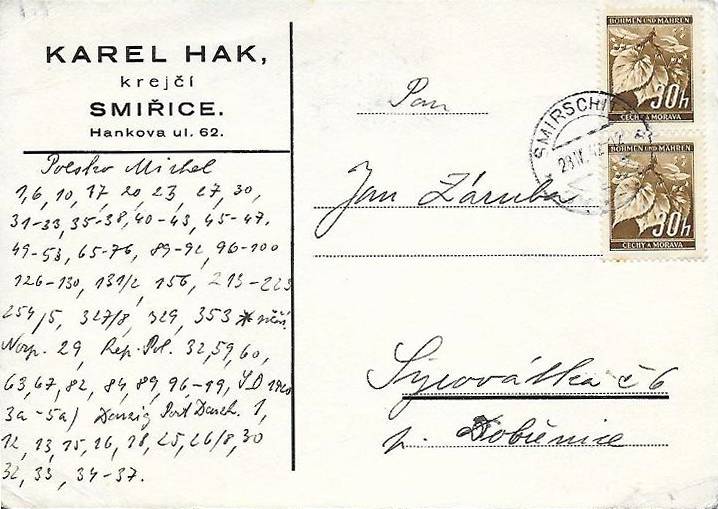 KAREL HAK,
krejčí
SMIŘICE.
Hankova ul. 62.
Polsko Michel
1,6, 10, 17, 20, 23, 27, 30,
31-33, 35-38, 40-43, 45-47,
49-53, 65-76, 89-92, 96-100
126-130, 131/2, 156, 213-223
254/5, 327/8, 329, 353 *
29, Rep. Pol. 32, 59, 60,
63, 67, 82, 84, 89, 96-19,
3a-5a/ Danzig Port 1,
12, 13, 15, 16, 18, 25, 26/8, 30
32, 33, 34-37.
BÖHMEN UND MÄHREN
30h
ČECHY A MORAVA
BÖHMEN UND MÄHREN
30h
ČECHY A MORAVA
SMIRSCHI
Pan
Jan Záruba
Syrovátka č 6
p. Dobřenice